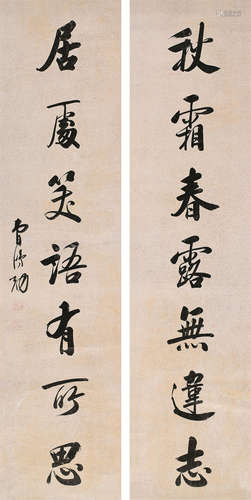 秋霜春露無違志
居處笑語有所思
曾國荃